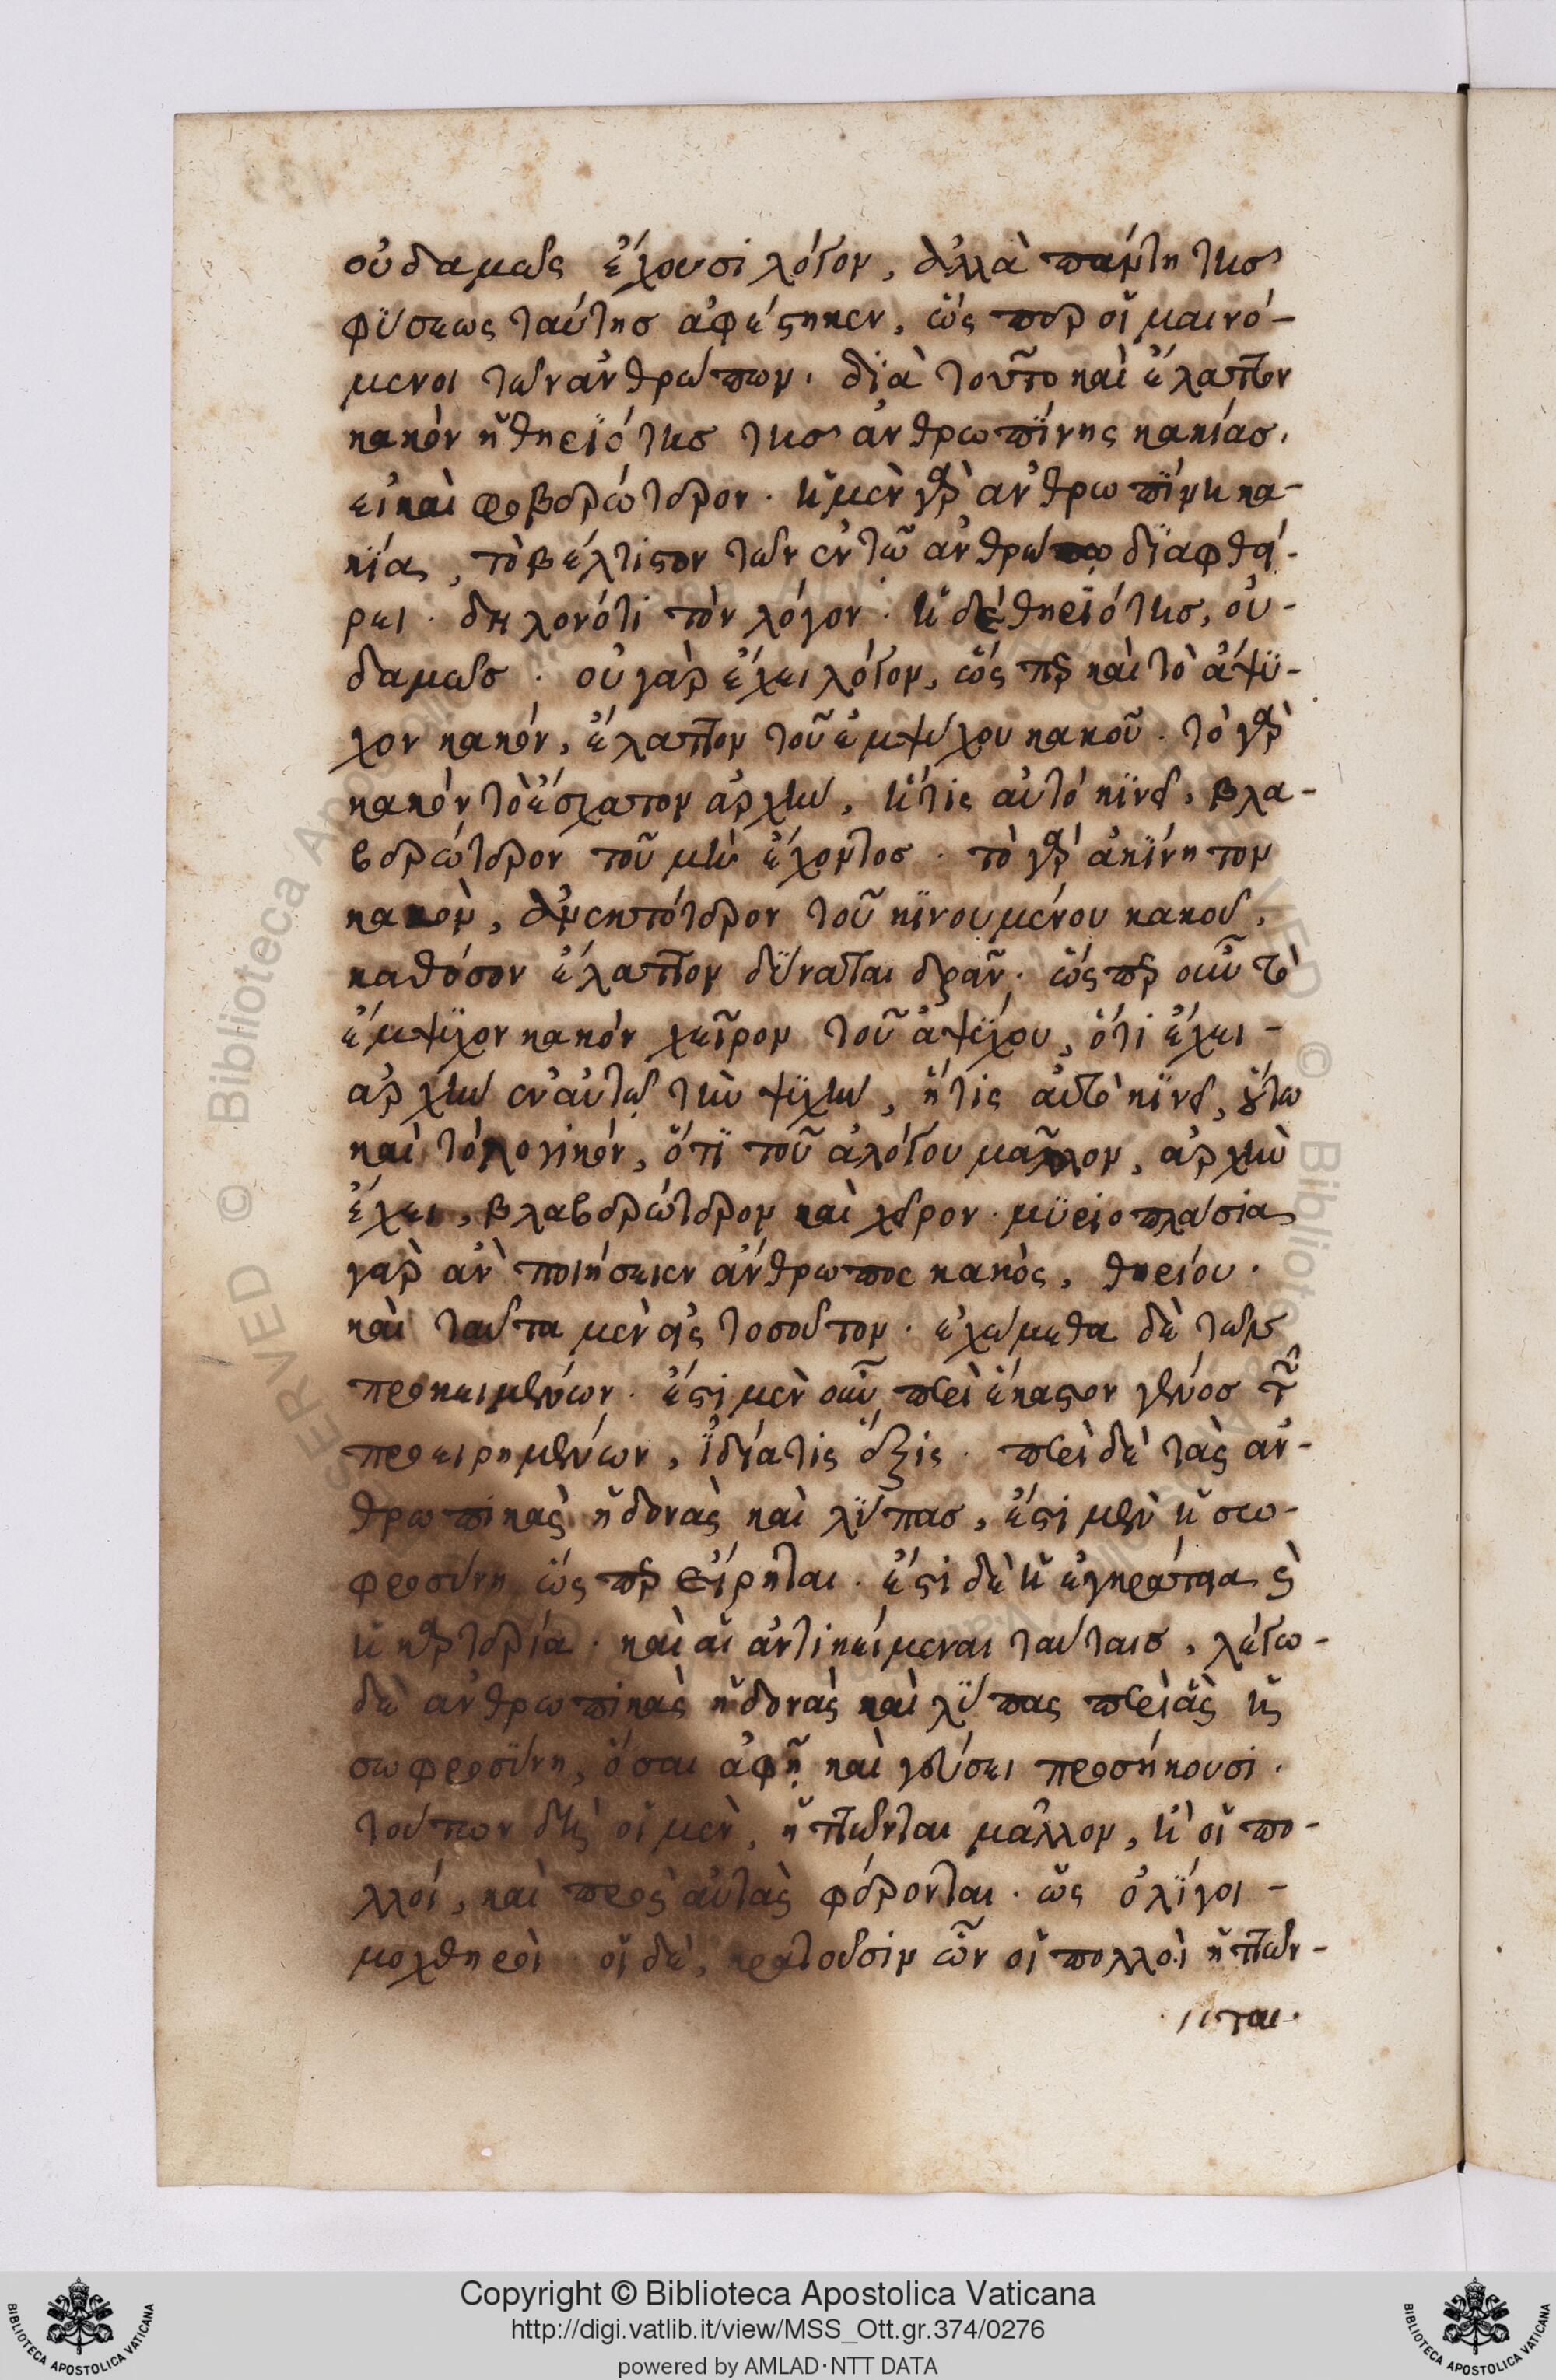 οὐδαμῶς ἔχουσι λόγον, ἀλλὰ πάντη τῆσ
φύσεως ταύτησ ἀφέστηκεν, ὥς περ οἱ μαινό-
μενοι τῶν ἀνθρώπων. διὰ τοῦτο καὶ ἔλαττον
κακὸν ἡ θηριότησ τῆσ ἀνθρωπίνης κακίασ,
εἰ καὶ φοβερώτερον. ἡ μὲν γὰρ ἀνθρωπίνη κα-
κία, τὸ βέλτιστον τῶν ἐν τῶ ἀνθρώπῳ διαφθεί-
ρει. δηλονότι τὸν λόγον. ἡ δὲ θηριότησ, οὐ-
δαμῶσ. οὐ γὰρ ἔχει λόγον, ὥς περ καὶ τὸ ἄψυ-
χον κακόν, ἔλαττον τοῦ ἐμψύχου κακοῦ. τὸ γὰρ
κακὸν τὸ ἔσχατον ἀρχὴν, ἥτις αὐτό κινεῖ, βλα-
βερώτερον τοῦ μὴ ἔχοντοσ. τὸ γὰρ ἀκίνητον
κακὸν, ἀνεκτότερον τοῦ κινουμένου κακοῦ,
καθόσον ἔλαττον δύναται δρᾶν. ὥς περ οὖν τὸ
ἔμψυχον κακόν χεῖρον τοῦ ἀψύχου, ὅτι ἔχει-
ἀρχὴν ἐν αὐτῷ τὴν ψυχὴν, ἥτις αὐτὸ κινεῖ, οὕτω
καὶ τὸ λογικόν, ὅτι τοῦ ἀλόγου μᾶλλον, ἀρχὴν
ἔχει, βλαβερώτερον καὶ χεῖρον. μυριοπλάσια
γὰρ ἂν ποιήσειεν ἄνθρωπος κακὸς, θηρίου.
καὶ ταῦτα μὲν εἰς τοσοῦτον. ἐχώμεθα δὲ τῶν
προκειμένων. ἔστι μὲν οὖν περὶ ἕκαστον γένοσ τῶν
προειρημένων, ἰδία τις ἕξις. περὶ δὲ τὰς ἀν-
θρωπικὰς ἡδονὰς καὶ λύπασ, ἔστι μὲν ἡ σω-
φροσύνη ὥς περ εἴρηται. ἔστι δὲ ἡ ἐγκράτεια καὶ
ἡ καρτερία. καὶ αἱ ἀντικείμεναι ταύταισ, λέγω-
δὲ ἀνθρωπικὰς ἡδονὰς καὶ λύπας περὶ ἃς ἡ
σωφροσύνη, ὅσαι ἀφῇ καὶ γεύσει προσήκουσι.
τούτων δὲ οἱ μὲν, ἡττῶνται μᾶλλον, ἢ οἱ πο-
λλοί, καὶ πρὸς αὐτὰς φέρονται. ὡς ὀλίγοι-
μοχθηροὶ οἱ δὲ, κρατοῦσιν ὧν οἱ πολλοὶ ἡττῶν-
ται.
Copyright © Biblioteca Apostolica Vaticana
http://digi.vatlib.it/view/MSS_Ott.gr.374/0276
powered by AMLAD·NTT DATA
BIBLIOTECA APOSTOLICA VATICANA
BIBLIOTECA APOSTOLICA VATICANA